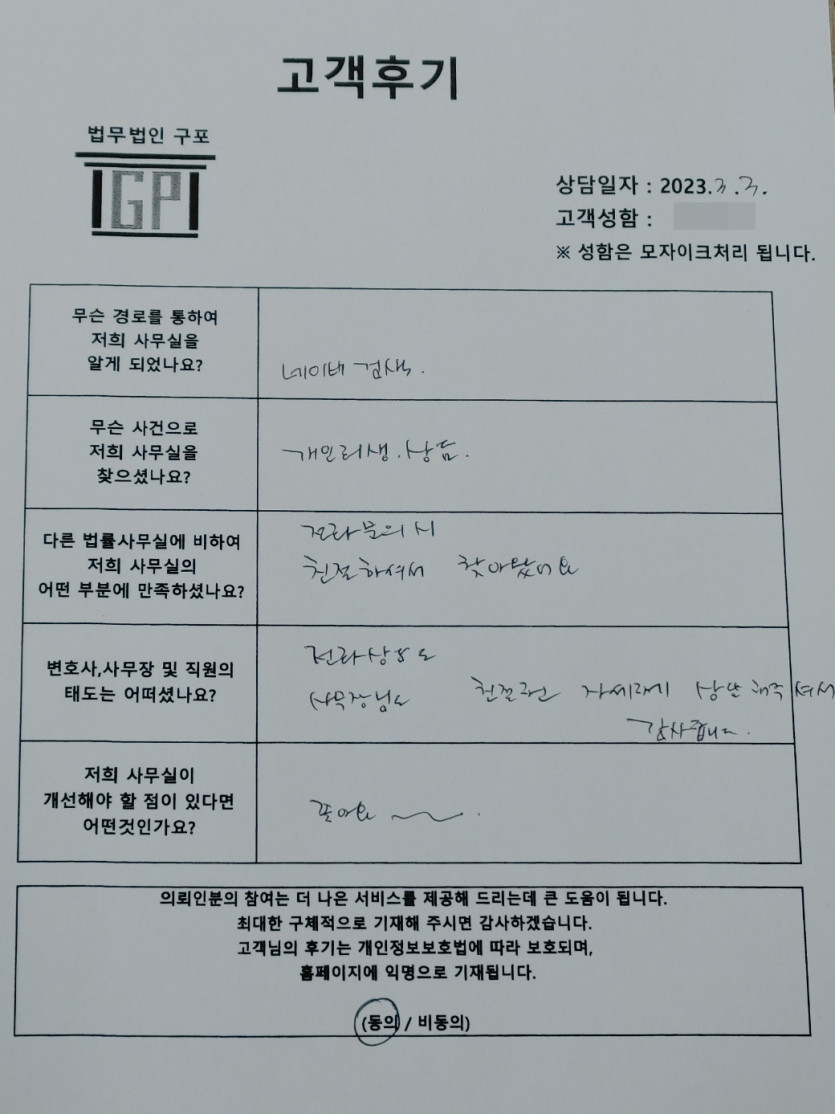 고객후기
법무법인 구포
GP
상담일자 : 2023. 3. 3.
고객성함 :
※ 성함은 모자이크처리 됩니다.
무슨 경로를 통하여
저희 사무실을
알게 되었나요?
네이버 검색.
무슨 사건으로
저희 사무실을
찾으셨나요?
개인회생.상담.
다른 법률사무실에 비하여
저희 사무실의
어떤 부분에 만족하셨나요?
전화문의 시
친절하셔서 찾아왔어요
변호사,사무장 및 직원의
태도는 어떠셨나요?
전화상으로
사무장님도 친절 자세하게 상담해주셔서
감사합니다.
저희 사무실이
개선해야 할 점이 있다면
어떤것인가요?
좋아요
의뢰인분의 참여는 더 나은 서비스를 제공해 드리는데 큰 도움이 됩니다.
최대한 구체적으로 기재해 주시면 감사하겠습니다.
고객님의 후기는 개인정보보호법에 따라 보호되며,
홈페이지에 익명으로 기재됩니다.
(동의 / 비동의)